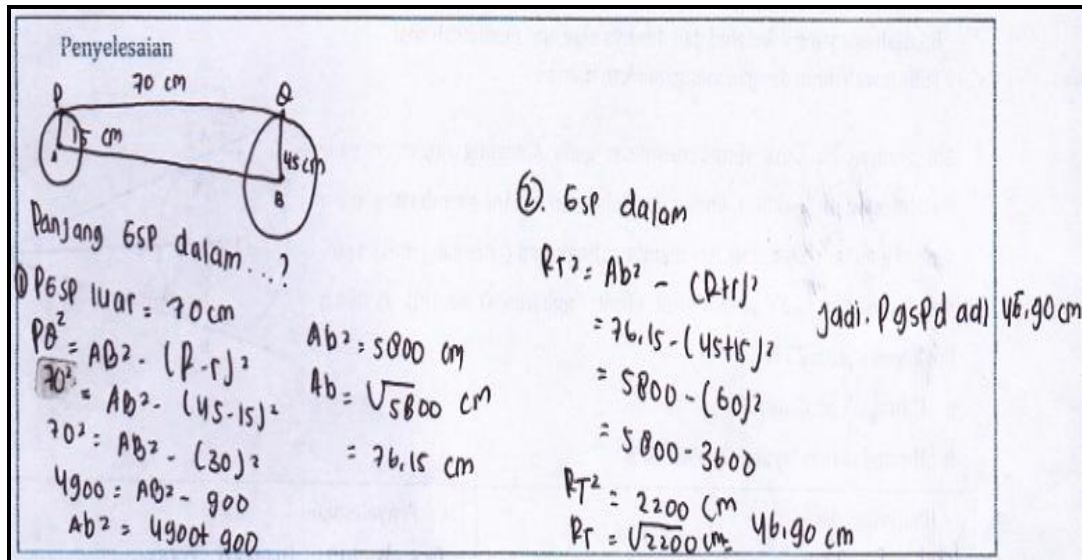 Penyelesaian
70 cm
P
Q
15 cm
45 cm
A
B
Panjang GSP dalam...?
① PGSP luar = 70 cm
PQ² = AB² - (R-r)²
70² = Ab² - (45-15)²
70² = AB² - (30)²
4900 = AB² - 900
Ab² = 4900+ 900
Ab² = 5800 cm
Ab = √5800 cm
= 76,15 cm
②. GSP dalam
RT² = Ab² - (R+r)²
= 76,15 - (45+15)²
= 5800 - (60)²
= 5800 - 3600
RT² = 2200 cm
RT = √2200 cm = 46,90 cm
jadi. PgsPd adl 46,90 cm